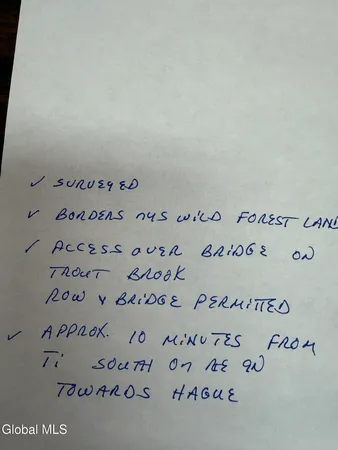 ✓ SURVEYED
✓ BORDERS NYS WILD FOREST LAND
✓ ACCESS OVER BRIDGE ON
TROUT BROOK
ROW & BRIDGE PERMITTED
✓ APPROX. 10 MINUTES FROM
Ti SOUTH ON RE 9N
TOWARDS HAGUE
Global MLS